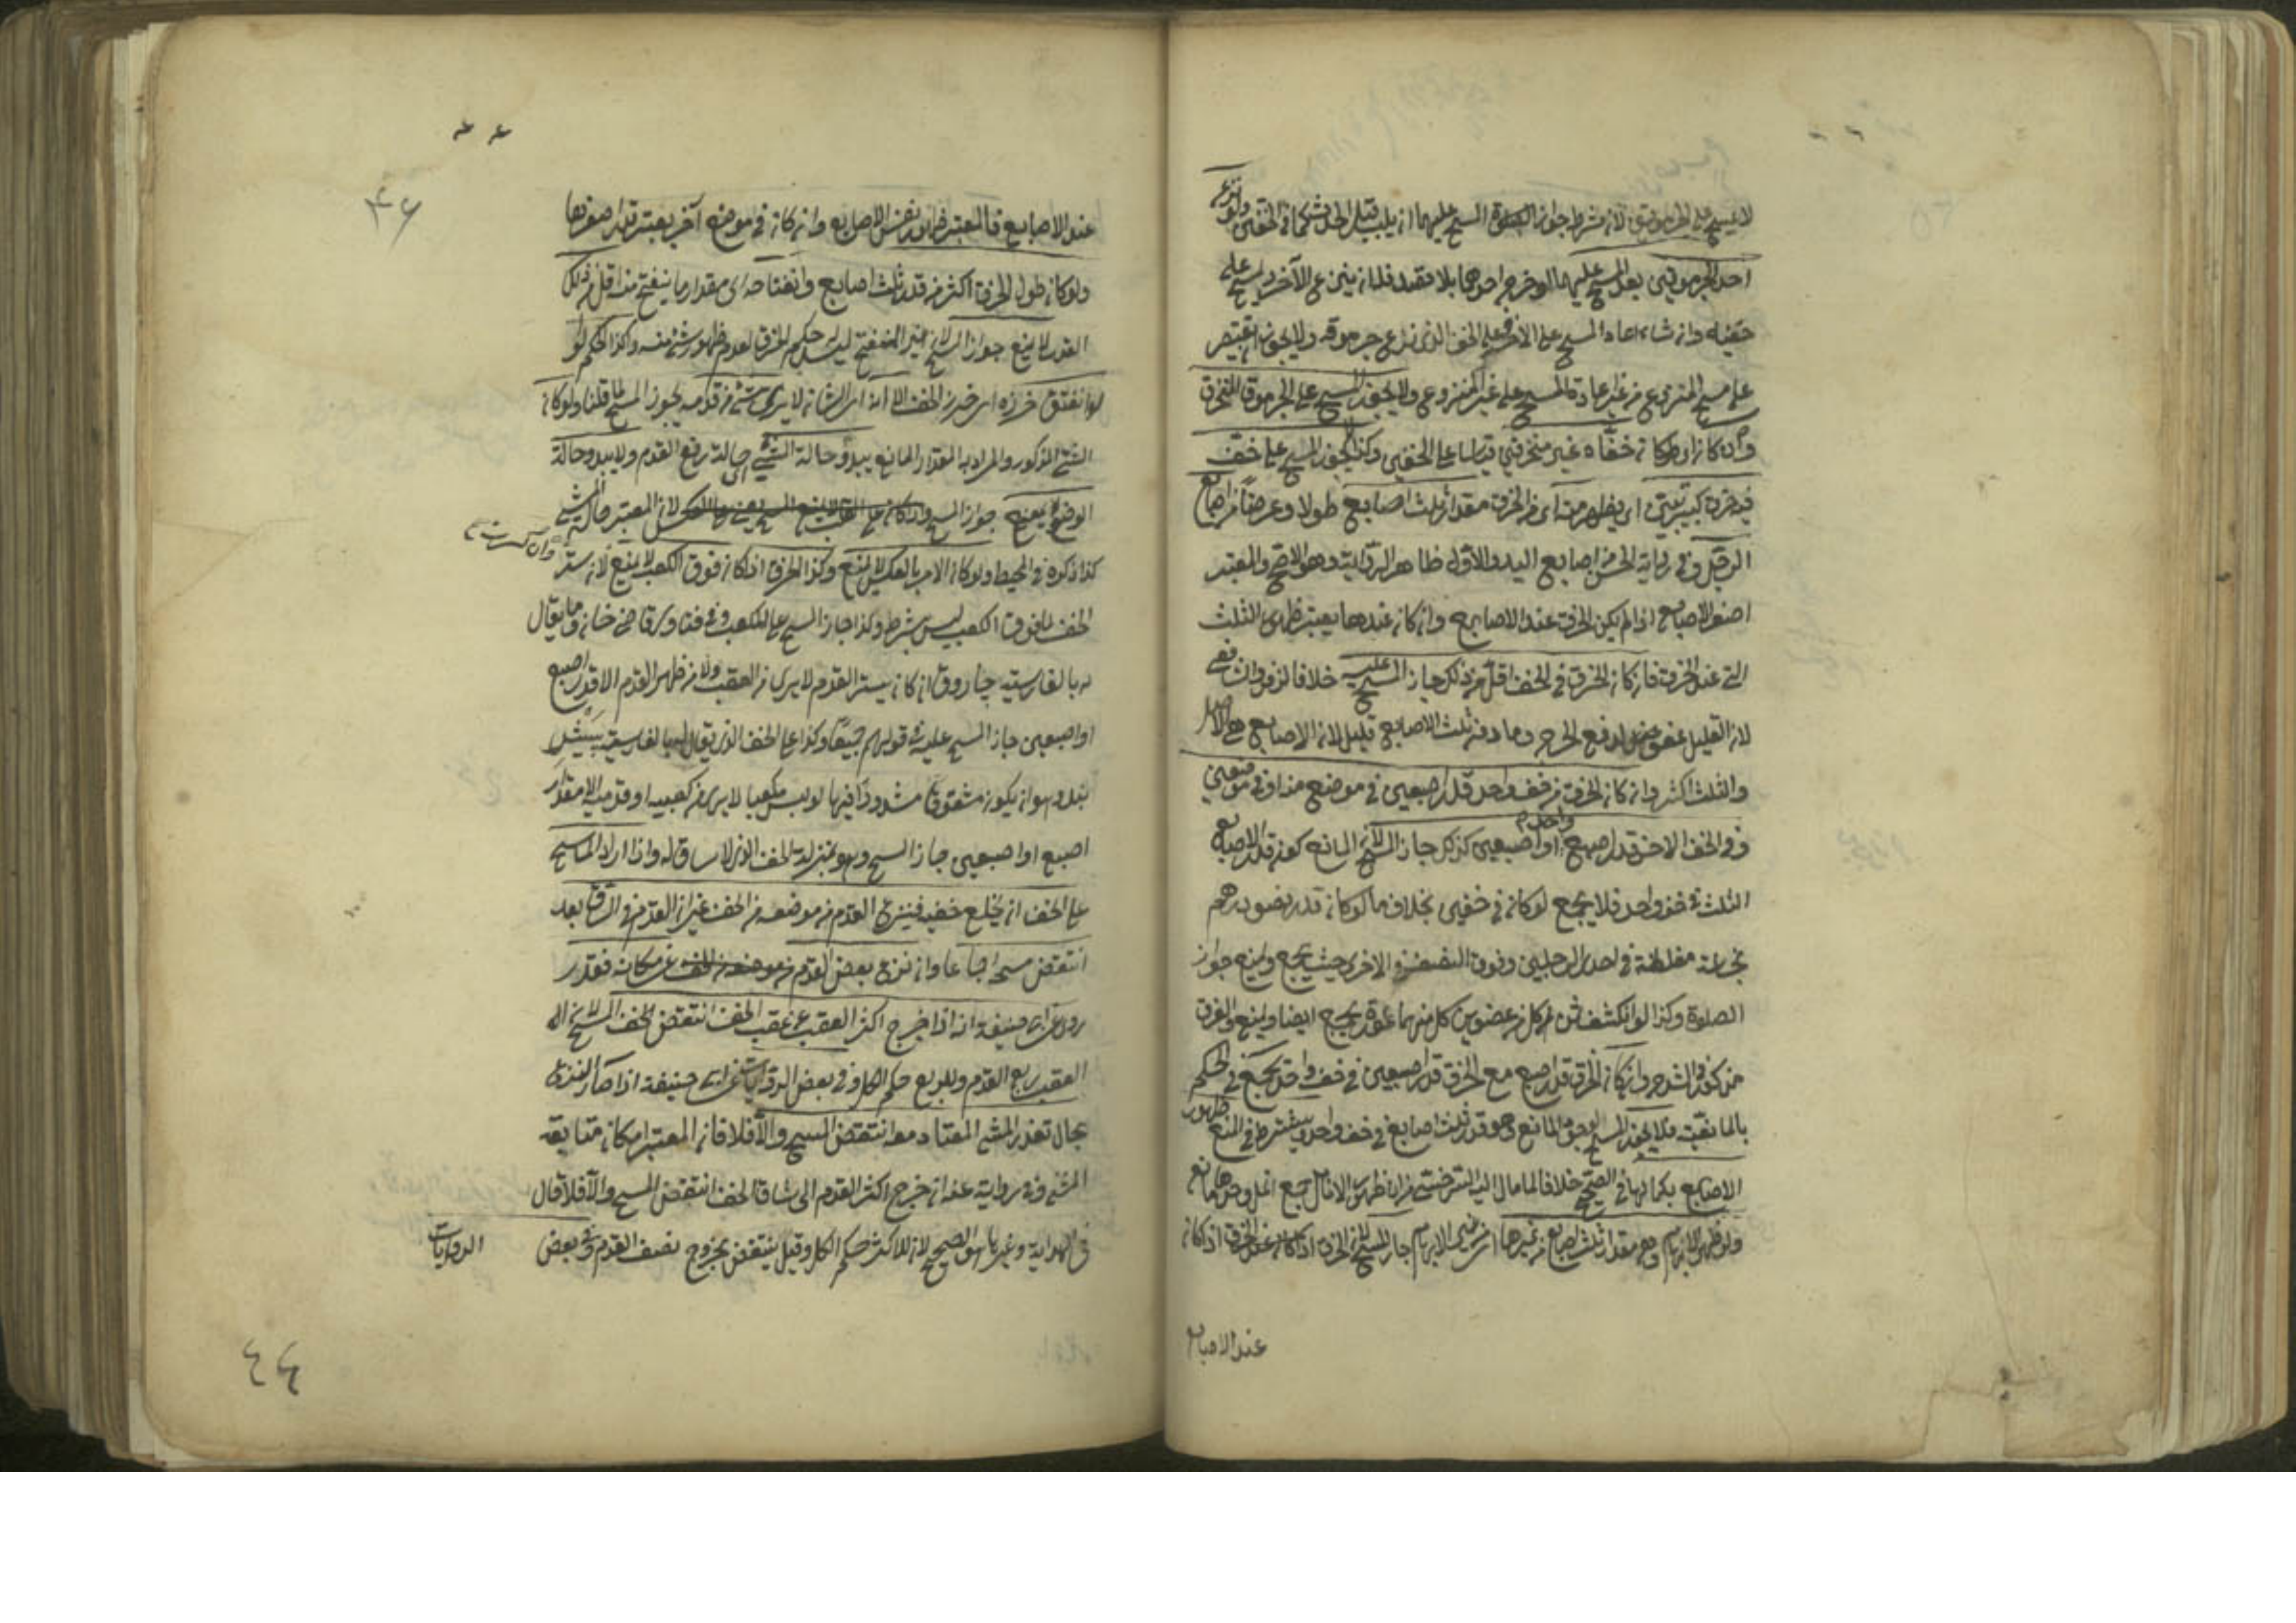 لا يمسح على الجرموقين لان شرط جواز المسح عليهما ان يلبس قبل الحدث كما في الخفين ولو نزع
احد الجرموقين بعد المسح عليهما او خرج احدهما بلا قصد فله ان ينزع الآخر ويمسح على
خفيه وان شاء اعاد المسح على الآخر وعلى الخف الذى نزع جرموقه ولا يجوز ان يقتصر
على مسح المنزوع من غير اعادة المسح على غير المنزوع ولا يجوز المسح على الجرموق المنخرق
وان كان خفاه غير منخرقين وكذا لا يجوز المسح على خف
فيه خرق كبير يتبين اى يظهر منه اى من الخرق مقدار ثلث اصابع طولا وعرضا من اصابع
الرجل وفي رواية الحسن من اصابع اليد والاول ظاهر الرواية وهو الاصح والمعتبر
اصغر الاصابع اذا لم يكن الخرق عند الاصابع وان كان عندها يعتبر ظهور الثلث
التى عند الخرق فان كان الخرق في الخف اقل من ذلك جاز المسح عليه خلافا لزفر والشافعى
لان القليل عفو لدفع الحرج وما دون ثلث الاصابع قليل لان الاصابع هى الاصل
والثلث اكثر وان كان الخرق في خف واحد قدر اصبعين في موضع منه او في موضعين
وفي الخف الآخر قدر اصبع واحدة او اصبعين كذلك جاز المسح لان المانع كونه قدر الاصابع
الثلث في خف واحد فلا يجمع لو كان في خفين بخلاف ما لو كان قدر نصف درهم
نجاسة مغلظة في احدى الرجلين وفوق النصف في الاخرى حيث يجمع ويمنع جواز
الصلوة وكذا لو انكشف ثمن كل من عضوين كل منهما عورة يجمع ايضا ويمنع والفرق
مذكور في الشرح وان كان الخرق قدر اصبع مع الخرق قدر اصبعين في خف واحد يجمع في الحكم
بالمانعية فلا يجوز المسح لوجود المانع وهو قدر ثلث اصابع في خف واحد ويشترط في المنع ظهور
الاصابع بكمالها في الصحيح خلافا لما مال اليه السرخسى من ان ظهور الانامل مانع
ولو ظهر الابهام وهو مقدار ثلث اصابع من غيرها اى من غير الابهام جاز المسح لان الخرق اذا كان
عند الاصابع
عند الاصابع فالمعتبر ظهور نفس الاصابع وان كان في موضع آخر يعتبر قدر اصغرها
ولو كان طول الخرق اكثر من قدر ثلث اصابع وانفتاحه اى مقدار ما ينفتح منه اقل من ذلك
القدر لا يمنع جواز المسح لان غير المنفتح ليس له حكم الخرق لعدم ظهور شئ منه وكذا الحكم لو
لو انفتق خرزه اى خرز الخف الا انه اى الشان لا يرى شئ من قدمه يجوز المسح لما قلنا ولو كان
الشئ المذكور والمراد به المقدار المانع يبدو حالة المشى اى حالة رفع القدم ولا يبدو حالة
الوضع يمنع جواز المسح لان المعتبر حالة المشى
كذا ذكره في المحيط ولو كان الامر بالعكس لا يمنع وكذا الخرق اذا كان فوق الكعب لا يمنع لان ستر
الخف لما فوق الكعب ليس بشرط وكذا جاز المسح على المكعب وفي فتاوى قاضى خان وما يقال
له بالفارسية جاروق ان كان يستر القدم لا يرى من العقب ولا من ظهر القدم الا قدر اصبع
او اصبعين جاز المسح عليه في قولهم جميعا وكذا على الخف الذى يقال له بالفارسية
وهو ان يكون مشقوقا مشدودا لو لبس مكعبا لا يرى من كعبيه او قدميه الا مقدار
اصبع او اصبعين جاز المسح وهو بمنزلة الخف الذى لا ساق له واذا اراد الماسح
على الخف ان يخلع خفيه فينزع القدم من موضعه من الخف غير ان القدم في الساق بعد
انتقض مسحه اجماعا وان نزع بعض القدم عن مكانه فقد
روى عن ابى حنيفة انه اذا خرج اكثر العقب عن عقب الخف انتقض
العقب ربع القدم وللربع حكم الكل وفي بعض الروايات عن ابى حنيفة اذا صار النزع
بحال تعذر المشى المعتاد معه انتقض المسح والا فلا فان المعتبر امكان متابعة
المشى وفي رواية عنه ان خرج اكثر القدم الى ساق الخف انتقض المسح والا فلا قال
في الهداية وغيرها هو الصحيح لان للاكثر حكم الكل وقيل ينتقض بخروج نصف القدم وفي بعض
الروايات
٤٤